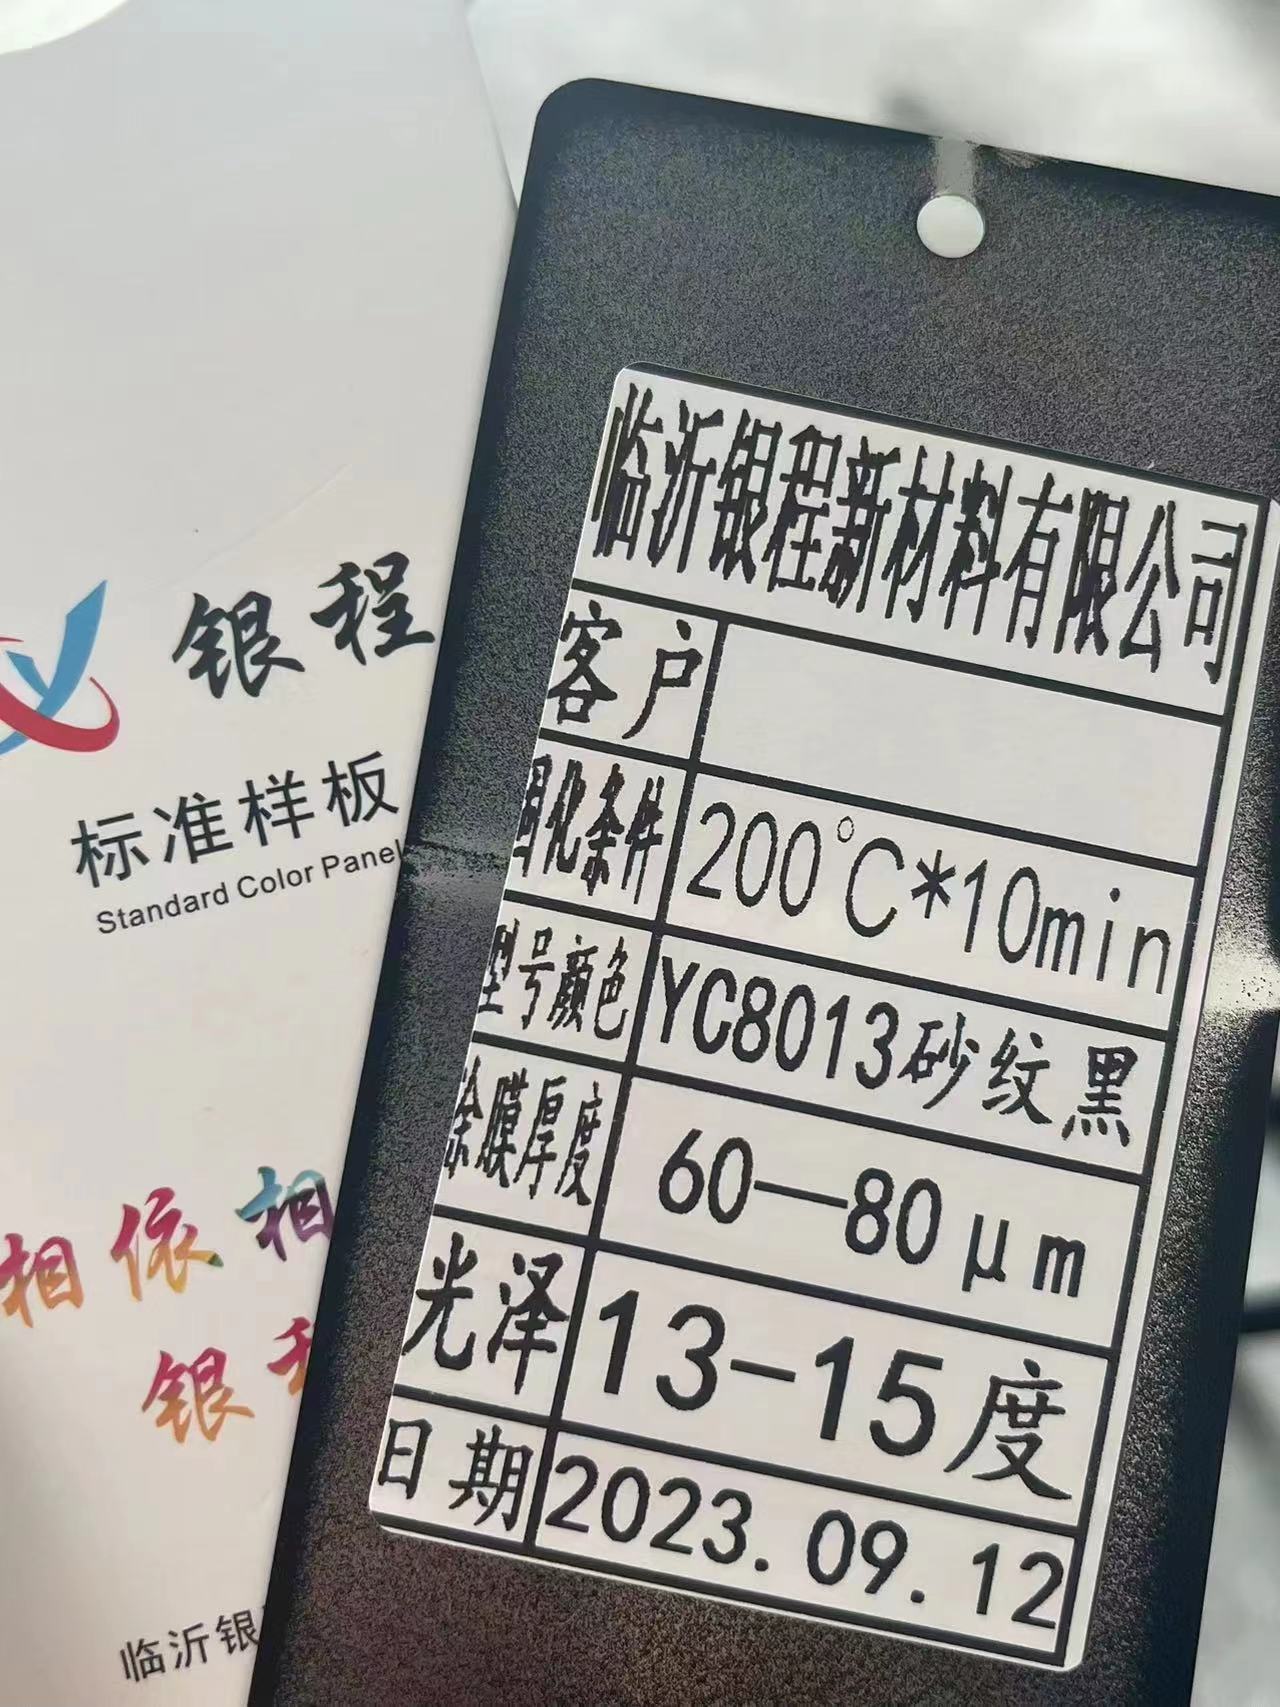 银程
标准样板
Standard Color Panel
相依相
银
临沂银
临沂银程新材料有限公司
客户
固化条件 200℃*10min
型号颜色 YC8013砂纹黑
涂膜厚度 60—80μm
光泽 13-15度
日期 2023.09.12